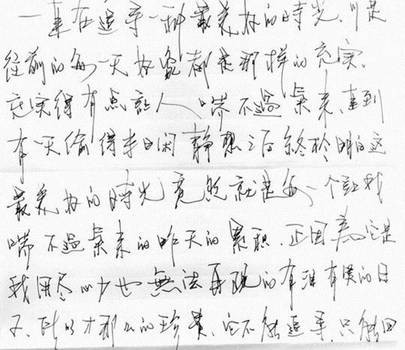 一直在追寻一种最美好的時光，可是
從前的每一天好象都是那样的充实、
充实得有点讓人喘不過氣来，直到
有一天偷得半日闲静想之后终於明白这
最美好的時光竟然就是每一个讓我
喘不過氣来的昨天的累积。正因為它是
我用尽心力也無法再现的有泪有笑的日
子，所以才那么的珍貴，它不能追寻，只能回